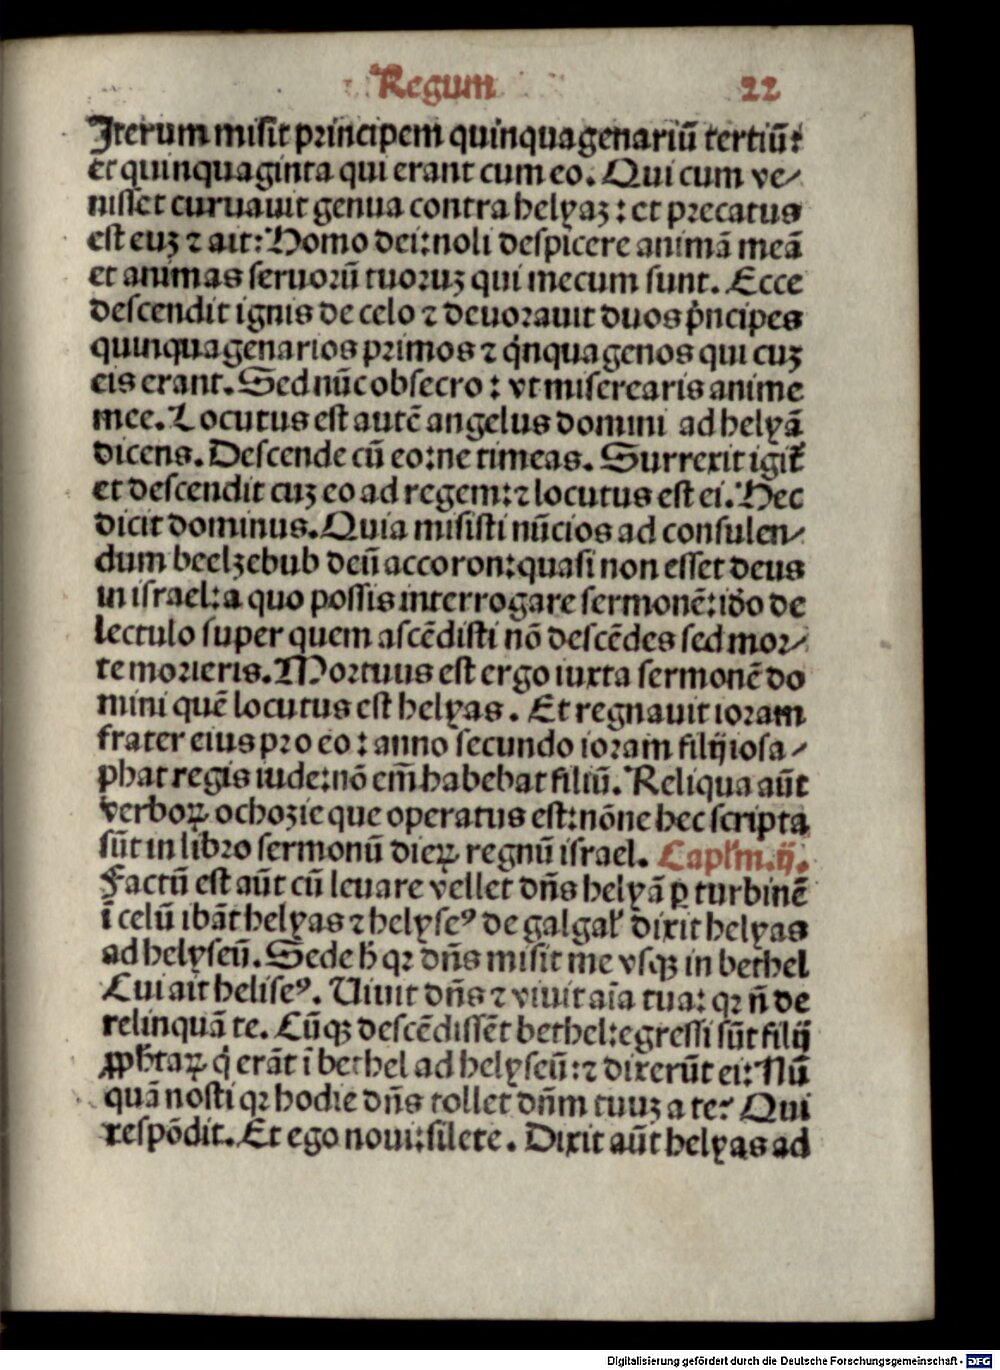 Regum 22
Iterum misit principem quinquagenariū tertiū:
et quinquaginta qui erant cum eo. Qui cum ve⸗
nisset curuauit genua contra helyaꝫ: et precatus
est euꝫ ⁊ ait: Homo dei: noli despicere animā meā
et animas seruorū tuoruꝫ qui mecum sunt. Ecce
descendit ignis de celo ⁊ deuorauit duos p̍ncipes
quinquagenarios primos ⁊ q̍nquagenos qui cuꝫ
eis erant. Sed nūc obsecro: vt miserearis anime
mee. Locutus est autē angelus domini ad helyā
dicens. Descende cū eo: ne timeas. Surrexit igit᷑
et descendit cuꝫ eo ad regem: ⁊ locutus est ei. Hec
dicit dominus. Quia misisti nūcios ad consulen⸗
dum beelzebub deū accoron: quasi non esset deus
in israel: a quo possis interrogare sermonē: iđo de
lectulo super quem ascēdisti nō descēdes sed mor⸗
te morieris. Mortuus est ergo iuxta sermonē do
mini quē locutus est helyas. Et regnauit ioram
frater eius pro eo: anno secundo ioram filij iosa⸗
phat regis iude: nō em̄ habebat filiū. Reliqua aūt
verboꝝ ochozie que operatus est: nōne hec scripta
sūt in libro sermonū dieꝝ regnū israel. Capl̓m.ij.
Factū est aūt cū leuare vellet dn̄s helyā ꝑ turbinē
ī celū ibāt helyas ⁊ helyseꝰ de galgal̓ dixit helyas
ad helyseū. Sede h̄ qꝛ dn̄s misit me vsqꝫ in bethel
Cui ait heliseꝰ. Uiuit dn̄s ⁊ viuit aīa tua: qꝛ n̄ de
relinquā te. Cūqꝫ descēdissēt bethel: egressi sūt filij
ꝓph̄taꝝ q̍ erāt ī bethel ad helyseū: ⁊ dixerūt ei: Nū
quā nosti qꝛ hodie dn̄s tollet dn̄m tuuꝫ a te? Qui
respōdit. Et ego noui: silete. Dixit aūt helyas ad
Digitalisierung gefördert durch die Deutsche Forschungsgemeinschaft - DFG